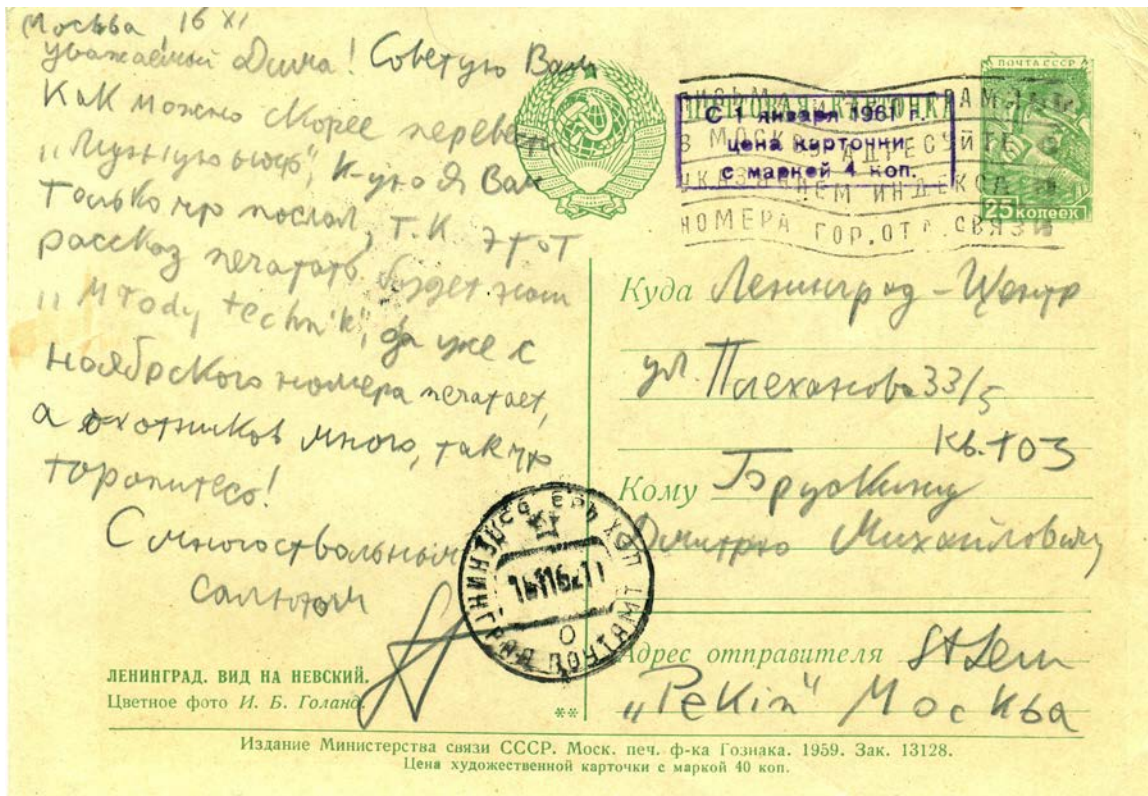 Москва, 16 XI
уважаемый Дима! Советую Вам
как можно скорее перевести
„Лунную ночь", к-ую я Вам
только что послал, т.к этот
рассказ печатать будет нам
„Młody technik", да уже с
ноябрского номера печатает,
а охотников много, так что
торопитесь!
С многоствольным
салютом
ЛЕНИНГРАД. ВИД НА НЕВСКИЙ.
Цветное фото И. Б. Голанд.
ПОЧТА СССР
25 копеек
ПОЧТОВАЯ КАРТОЧКА
С 1 января 1961 г.
цена карточки
с маркой 4 коп.
В МОСКВУ АДРЕСУЙТЕ С
УКАЗАНИЕМ ИНДЕКСА И
НОМЕРА ГОР.ОТД.СВЯЗИ
Куда Ленинград-Центр
ул. Плеханова 33/5
кв. 103
Кому Брускину
Дмитрию Михайловичу
ЛЕНИНГРАД
Адрес отправителя St Lem
„Pekin" Москва
**
Издание Министерства связи СССР. Моск. печ. ф-ка Гознака. 1959. Зак. 13128.
Цена художественной карточки с маркой 40 коп.